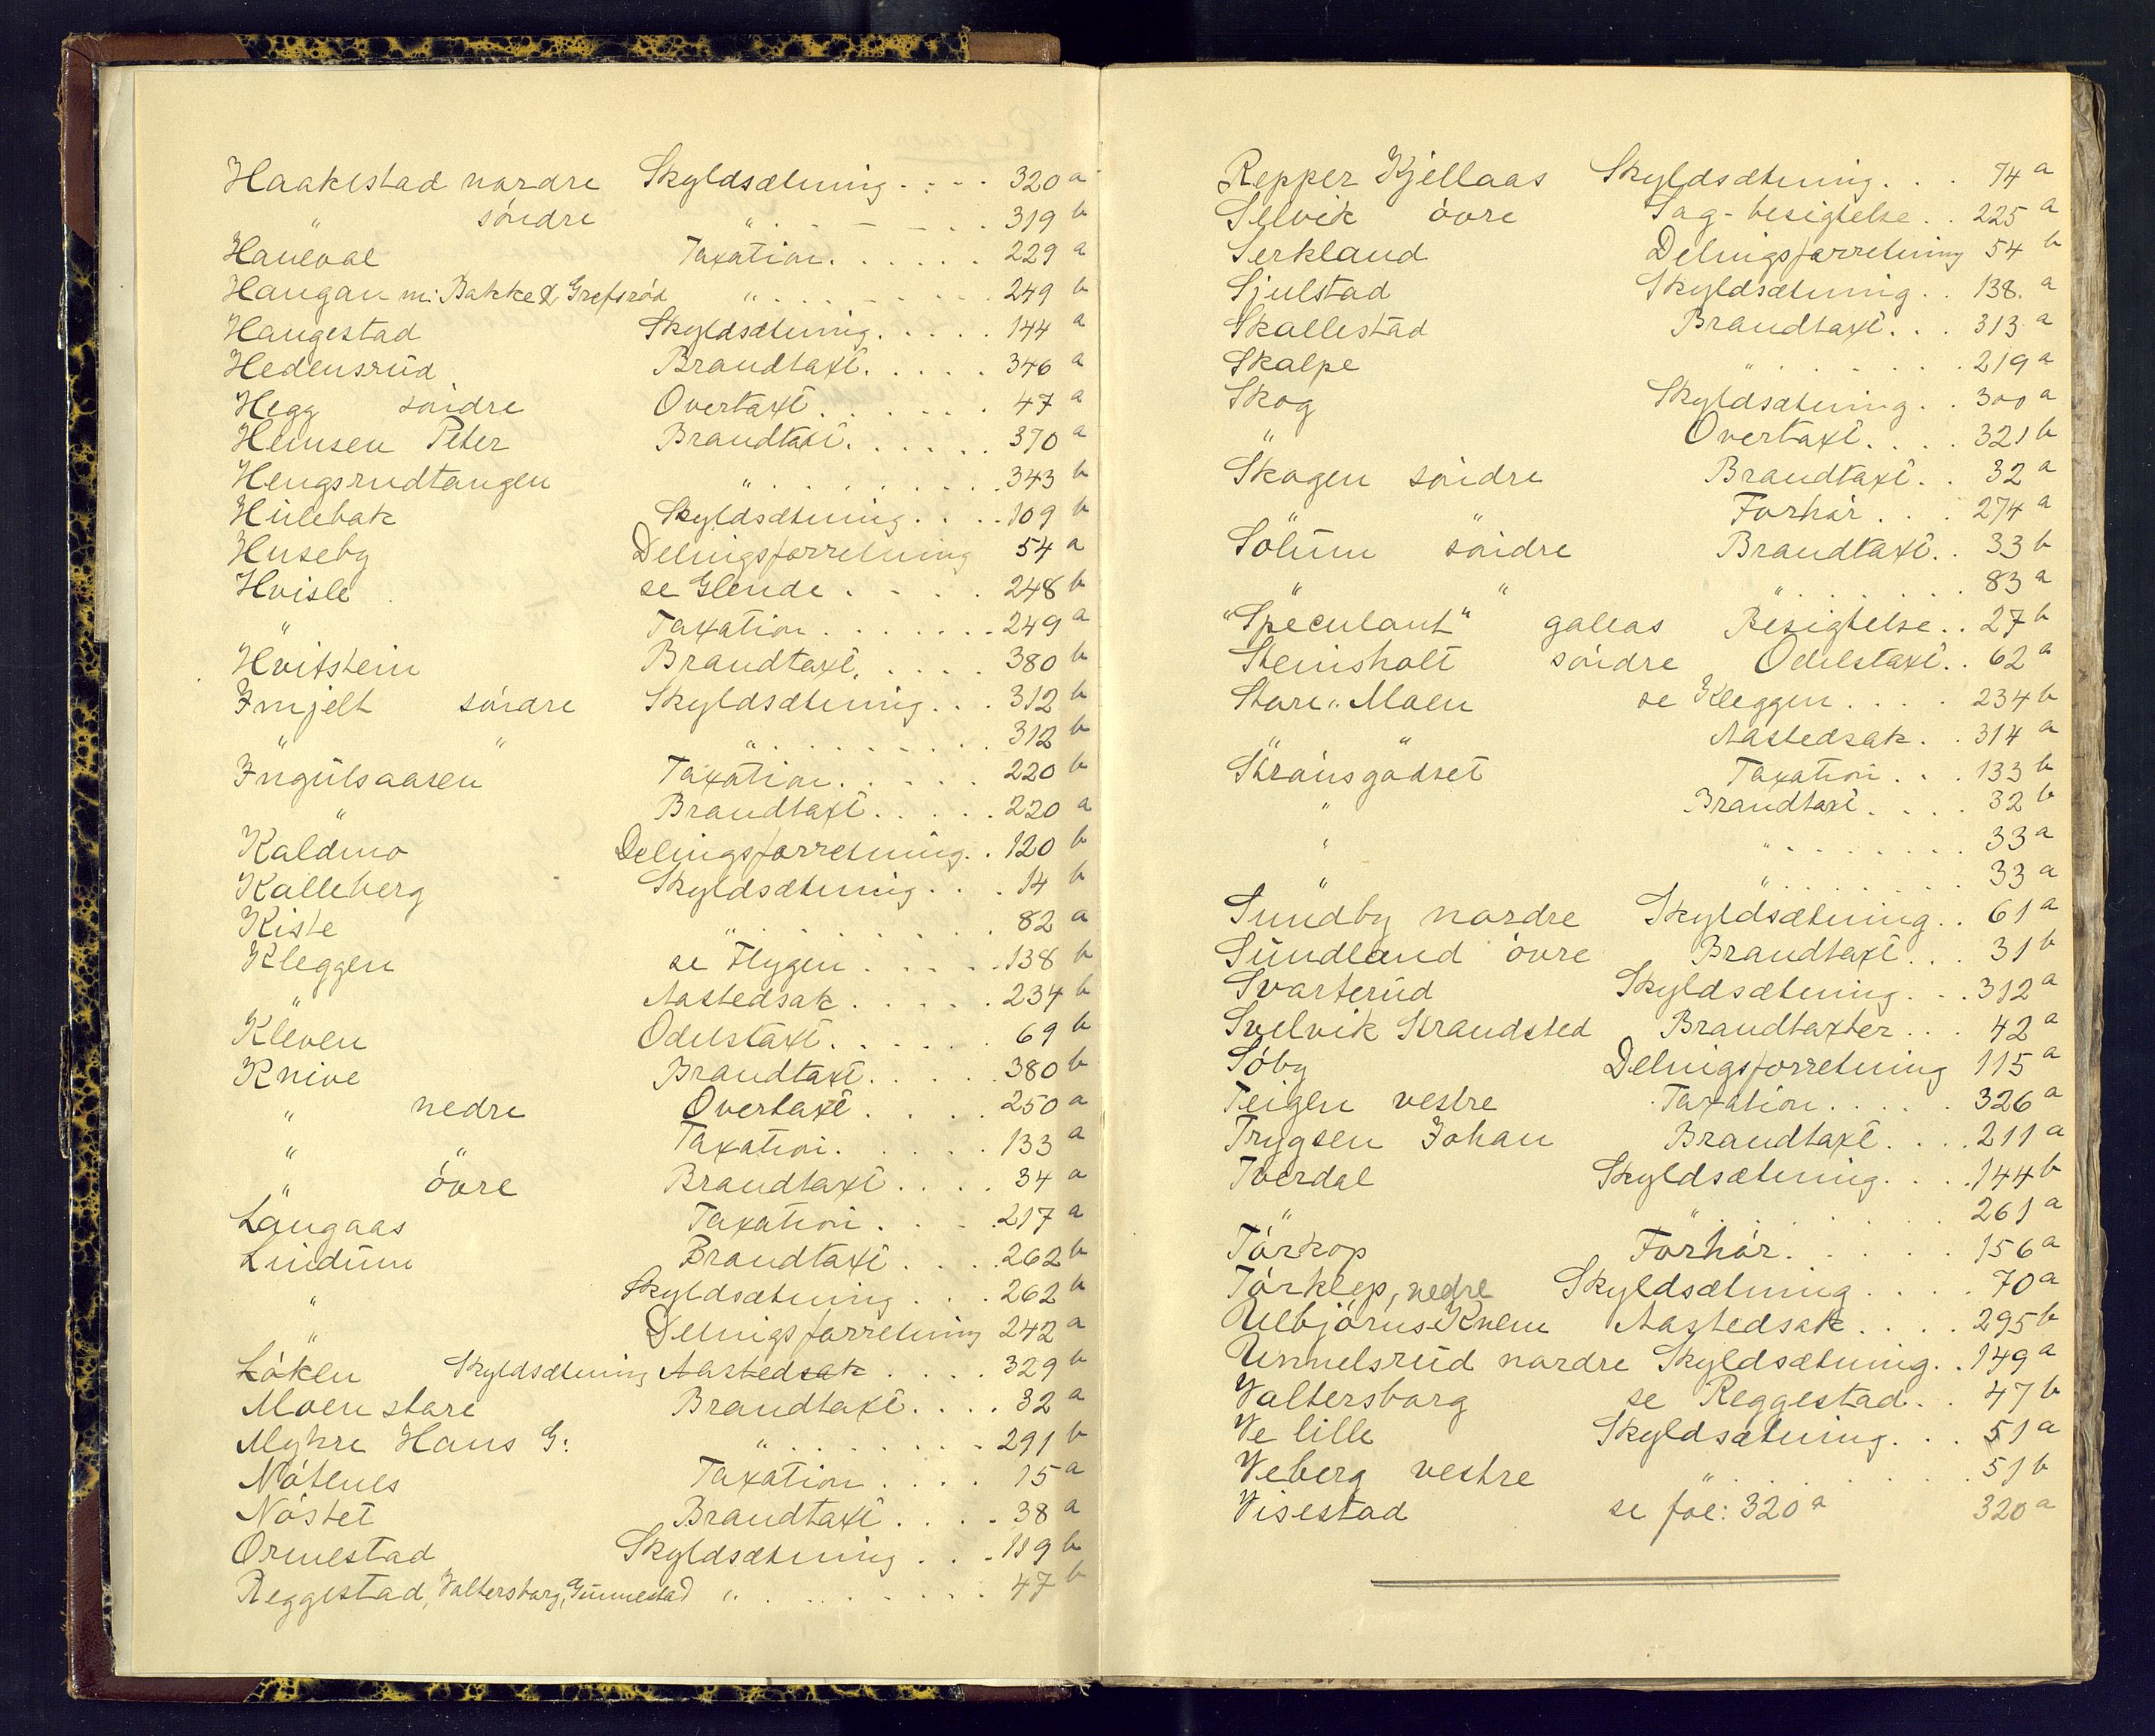 Haakestad nordre Skyldsætning . . . . 320 a
" söndre " . . . . . . 319 b
Haneval Taxation . . . . . . 229 a
Haugan m: Bakke & Grefsrød " . . . . . . 249 b
Haugestad Skyldsætning . . . . . 144 a
Hedensrud Brandtaxt . . . . . 346 a
Hegg söndre Overtaxt . . . . . . 47 a
Hemsen Peter Brandtaxt . . . . . . 370 a
Hengsrudtangen " . . . . . . . . 343 b
Hulebak Skyldsætning . . . . 109 b
Huseby Delingsforretning 54 a
Hvisle se Glende . . . . 248 b
" Taxation . . . . . . . 249 a
Hvitstein Brandtaxt . . . . . 380 b
Imjelt söndre Skyldsætning . . . 312 b
" " " . . . . . . . . 312 b
Ingulsaasen Taxation . . . . . 220 b
" Brandtaxt . . . . . 220 a
Kaldmo Delingsforretning . . 120 b
Kalleberg Skyldsætning . . . 14 b
Kiste " . . . . . . . . 82 a
Kleggen se Flygen . . . . . 138 b
" Aastedsak . . . . . 234 b
Kleven Odelstaxt . . . . . . 69 b
Knive Brandtaxt . . . . . 380 b
" nedre Overtaxt . . . . 250 a
" " Taxation . . . . . . 133 a
" övre Brandtaxt . . . . 34 a
Langaas Taxation . . . . 217 a
Lindum Brandtaxt . . . . 262 b
" Skyldsætning . . . 262 b
" Delingsforretning 242 a
Löken Skyldsætning Aastedsak . . . . 329 b
Moen store Brandtaxt . . . . 32 a
Myhre Hans G: " . . . . . . . . 291 b
Nötenes Taxation . . . . 15 a
Nöstet Brandtaxt . . . . 38 a
Ormestad Skyldsætning . . . 119 b
Reggestad, Valtersborg, Gunnestad " . . . . . . . . 47 b
Repper Kjellaas Skyldsætning . . . 74 a
Selvik övre Sag-besigtelse . . 225 a
Serkland Delingsforretning 54 b
Sjulstad Skyldsætning . . 138. a
Skallestad Brandtaxt . . . 313 a
Skalpe " . . . . . . . 219 a
Skog Skyldsætning . . 300 a
" Overtaxt . . . . 321 b
Skogen söndre Brandtaxt . . 32 a
" Forhör . . . 274 a
Solum söndre Brandtaxt . . 33 b
" " " . . . . . . . 83 a
"Speculant" galeas Besigtelse . . 27 b
Steinsholt söndre Odelstaxt . . 62 a
Store " Moen se Kleggen . . . . 234 b
" " Aastedsak . . 314 a
Strömsgodset Taxation . . . 133 b
" Brandtaxt . . . . 32 b
" " . . . . . . . . 33 a
" " . . . . . . . . 33 a
Sundby nordre Skyldsætning . . 61 a
Sundland övre Brandtaxt . . . 31 b
Svarterud Skyldsætning . . . 312 a
Svelvik Strandsted Brandtaxter . . . 42 a
Söby Delingsforretning 115 a
Teigen vestre Taxation . . . . . 326 a
Trygsen Johan Brandtaxt . . . . 211 a
Tverdal Skyldsætning . . . . 144 b
" " . . . . . . . 261 a
Törkop Forhör . . . . . . 156 a
Törklep, nedre Skyldsætning . . . . 70 a
Ulbjörns-Kvern Aastedsak . . . . 295 b
Ummelsrud nordre Skyldsætning . . 149 a
Valtersborg se Reggestad . . 47 b
Ve lille Skyldsætning . . . 51 a
Veberg vestre " . . . . . . . . 51 b
Visestad se fol: 320 a 320 a